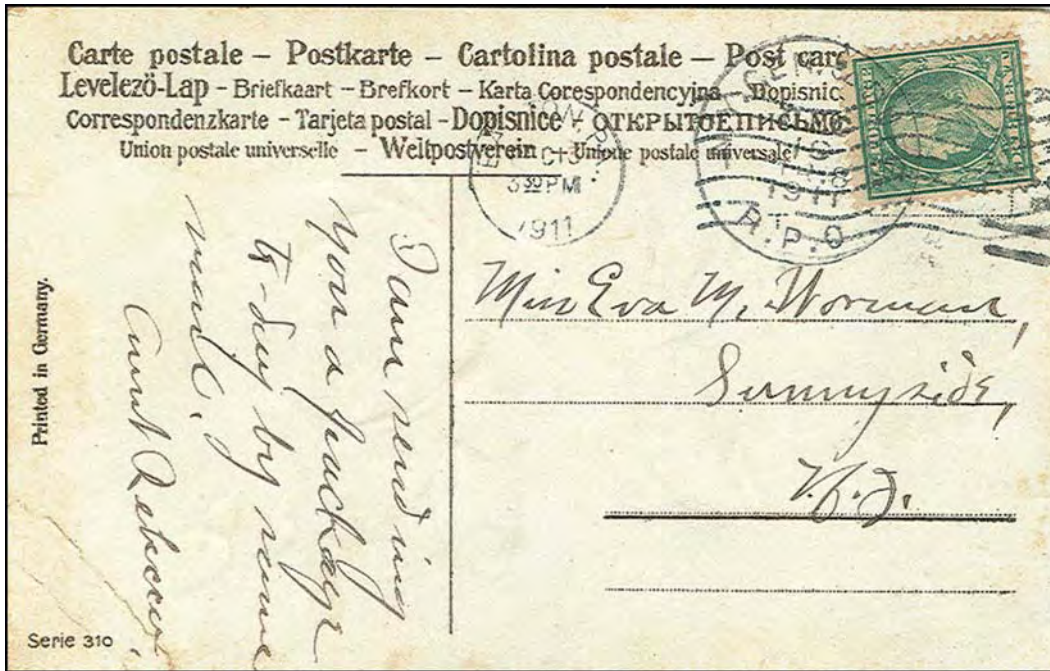 Carte postale – Postkarte – Cartolina postale – Post card
Levelező-Lap – Briefkaart – Brefkort – Karta Corespondencyjna Dopisnic
Correspondenzkarte – Tarjeta postal – Dopisnice – ОТКРЫТОЕ ПИСЬМО
Union postale universelle – Weltpostverein – Unione postale universale
OCT 3
3 30 PM
1911
1911
R.P.O
I am sending
you a package
to-day by same
mail.
Aunt Rebecca.
Miss Eva M. Worman,
Sunnyside,
N.J.
Printed in Germany.
Serie 310